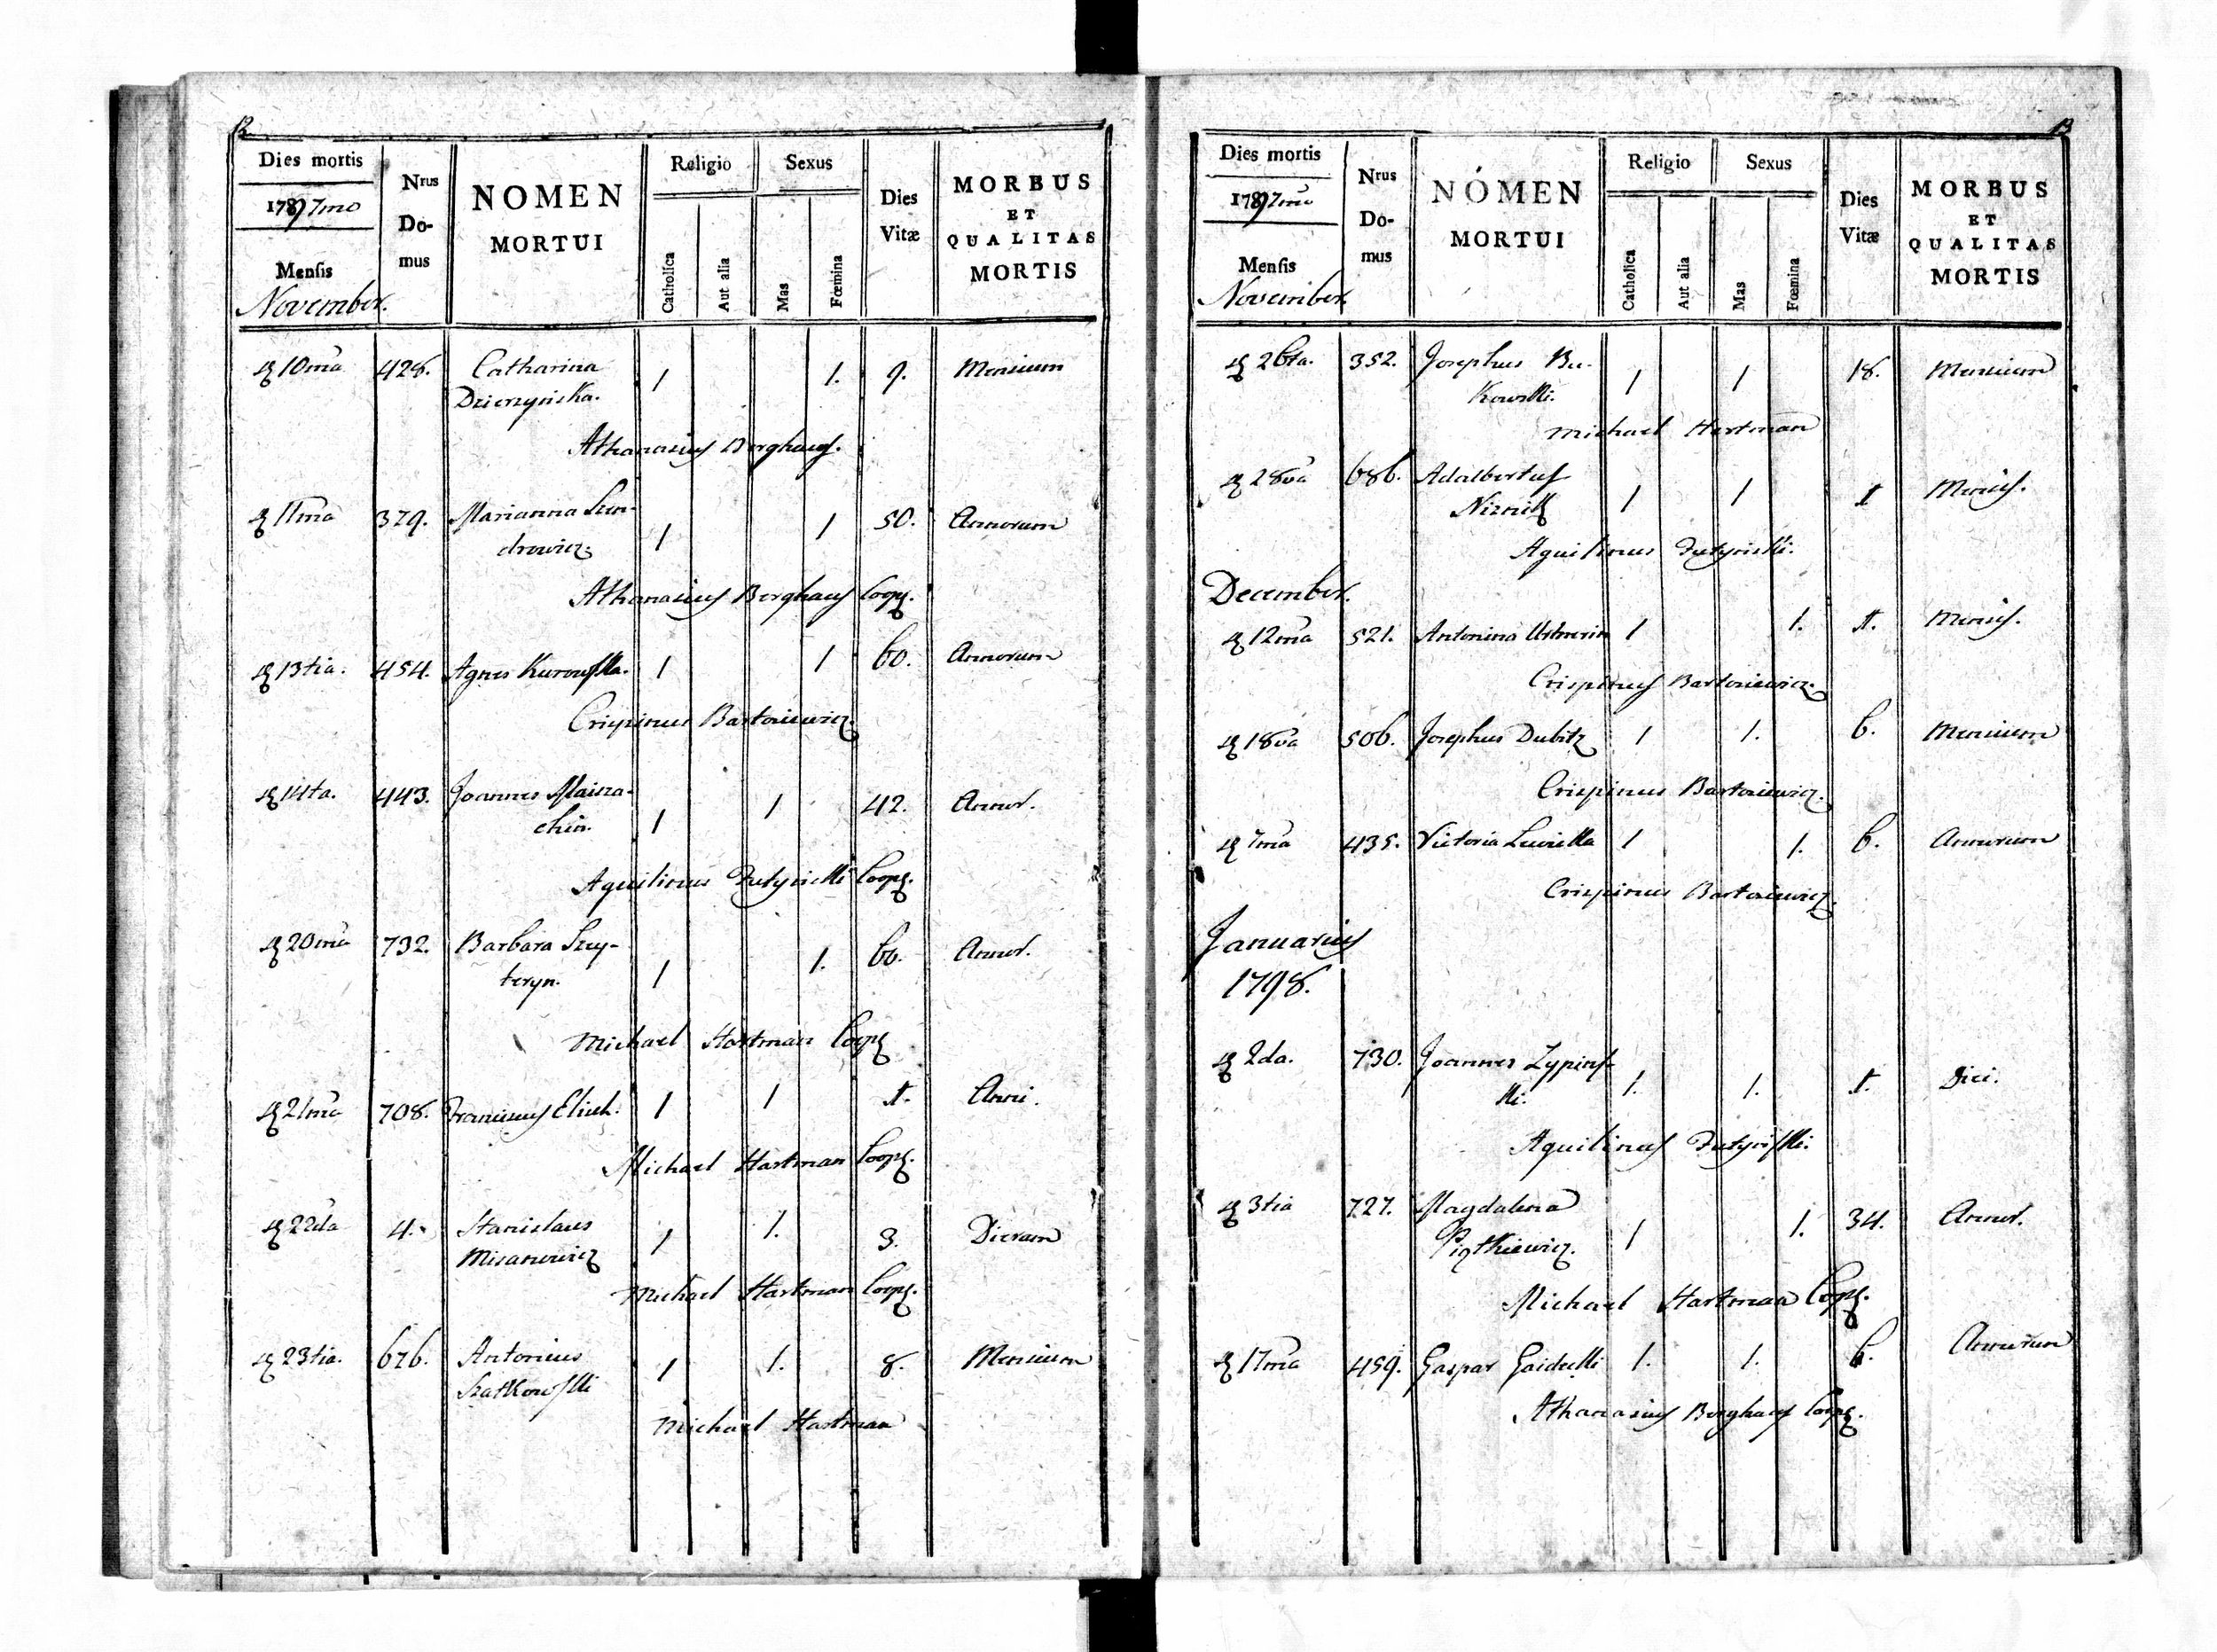 12
Dies mortis
1797mo
Mensis
November.
Nrus
Do-
mus
NOMEN
MORTUI
Religio
Catholica
Aut alia
Sexus
Mas
Fœmina
Dies
Vitæ
MORBUS
ET
QUALITAS
MORTIS
10ma 428. Catharina 1 1. 9. Mensium
Dzierzyńska.
Athanasius Berghaus.
11ma 379. Marianna
drowicz. 1 1 50. Annorum
Athanasius Berghaus Coop.
13tia. 454. Agnes Kurowska. 1 1 60. Annorum
Crispinus Bartoniewicz.
14ta. 443. Joannes
1 1 42. Annor.
Aquilinus Coop.
20ma 732. Barbara Szry-
teryn. 1 1. 60. Annor.
Michael Hartman Coop
21ma 708. 1 1 1. Anni.
Michael Hartman Coop.
22da 4. Stanislaus 1 1. 3. Dierum
Misanowicz
Michael Hartman Coop.
23tia. 676. Antonius 1 1. 8. Mensium
Szatkowski
Michael Hartman
13
Dies mortis
1797mo
Mensis
November.
Nrus
Do-
mus
NOMEN
MORTUI
Religio
Catholica
Aut alia
Sexus
Mas
Fœmina
Dies
Vitæ
MORBUS
ET
QUALITAS
MORTIS
26ta. 352. Josephus Bu-
kowski. 1 1 18. Mensium
Michael Hartman
28va 686. Adalbertus
1 1 1 Mensis.
Aquilinus
December.
12ma 521. Antonina 1 1. 1. Mensis.
Crispinus Bartoniewicz.
18va 506. Josephus Dubitz 1 1. 6. Mensium
Crispinus Bartoniewicz.
7ma 435. Victoria 1 1. 6. Annorum
Crispinus Bartoniewicz.
Januarius
1798.
2da. 730. Joannes Zypins-
ki. 1. 1. 1. Diei.
Aquilinus
3tia 727. Magdalena
Piątkiewicz. 1 1. 34. Annor.
Michael Hartman Coop.
17ma 459. Gaspar 1. 1. 6. Annorum
Athanasius Berghaus Coop.